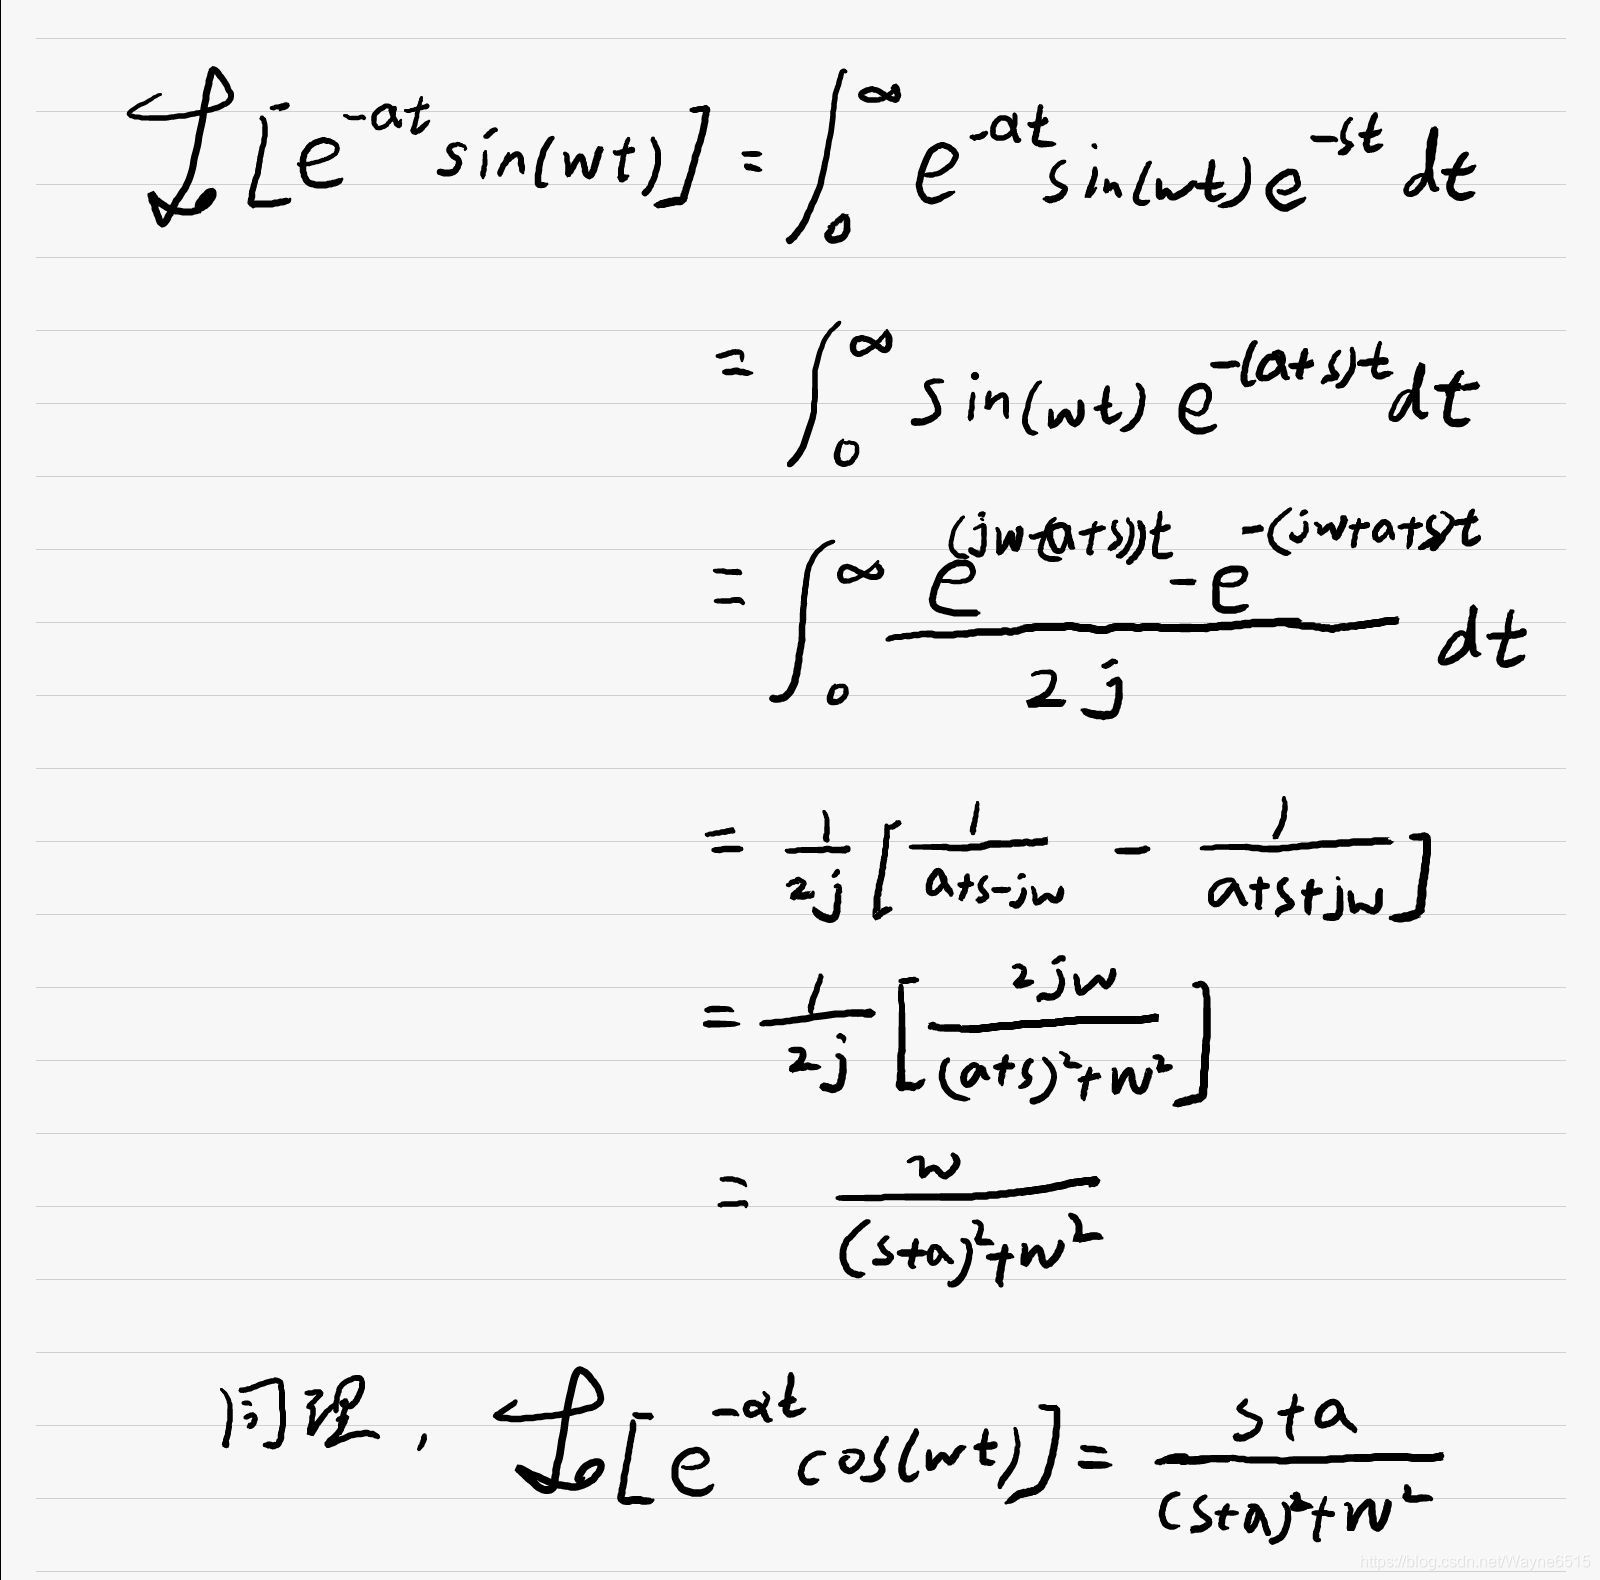 ℒ[e^{-at} sin(wt)] = ∫_0^∞ e^{-at} sin(wt) e^{-st} dt
= ∫_0^∞ sin(wt) e^{-(a+s)t} dt
= ∫_0^∞ \frac{e^{(jw-(a+s))t} - e^{-(jw+a+s)t}}{2j} dt
= \frac{1}{2j} [\frac{1}{a+s-jw} - \frac{1}{a+s+jw}]
= \frac{1}{2j} [\frac{2jw}{(a+s)^2+w^2}]
= \frac{w}{(s+a)^2+w^2}
同理, ℒ[e^{-at} cos(wt)] = \frac{s+a}{(s+a)^2+w^2}
https://blog.csdn.net/Wayne6515